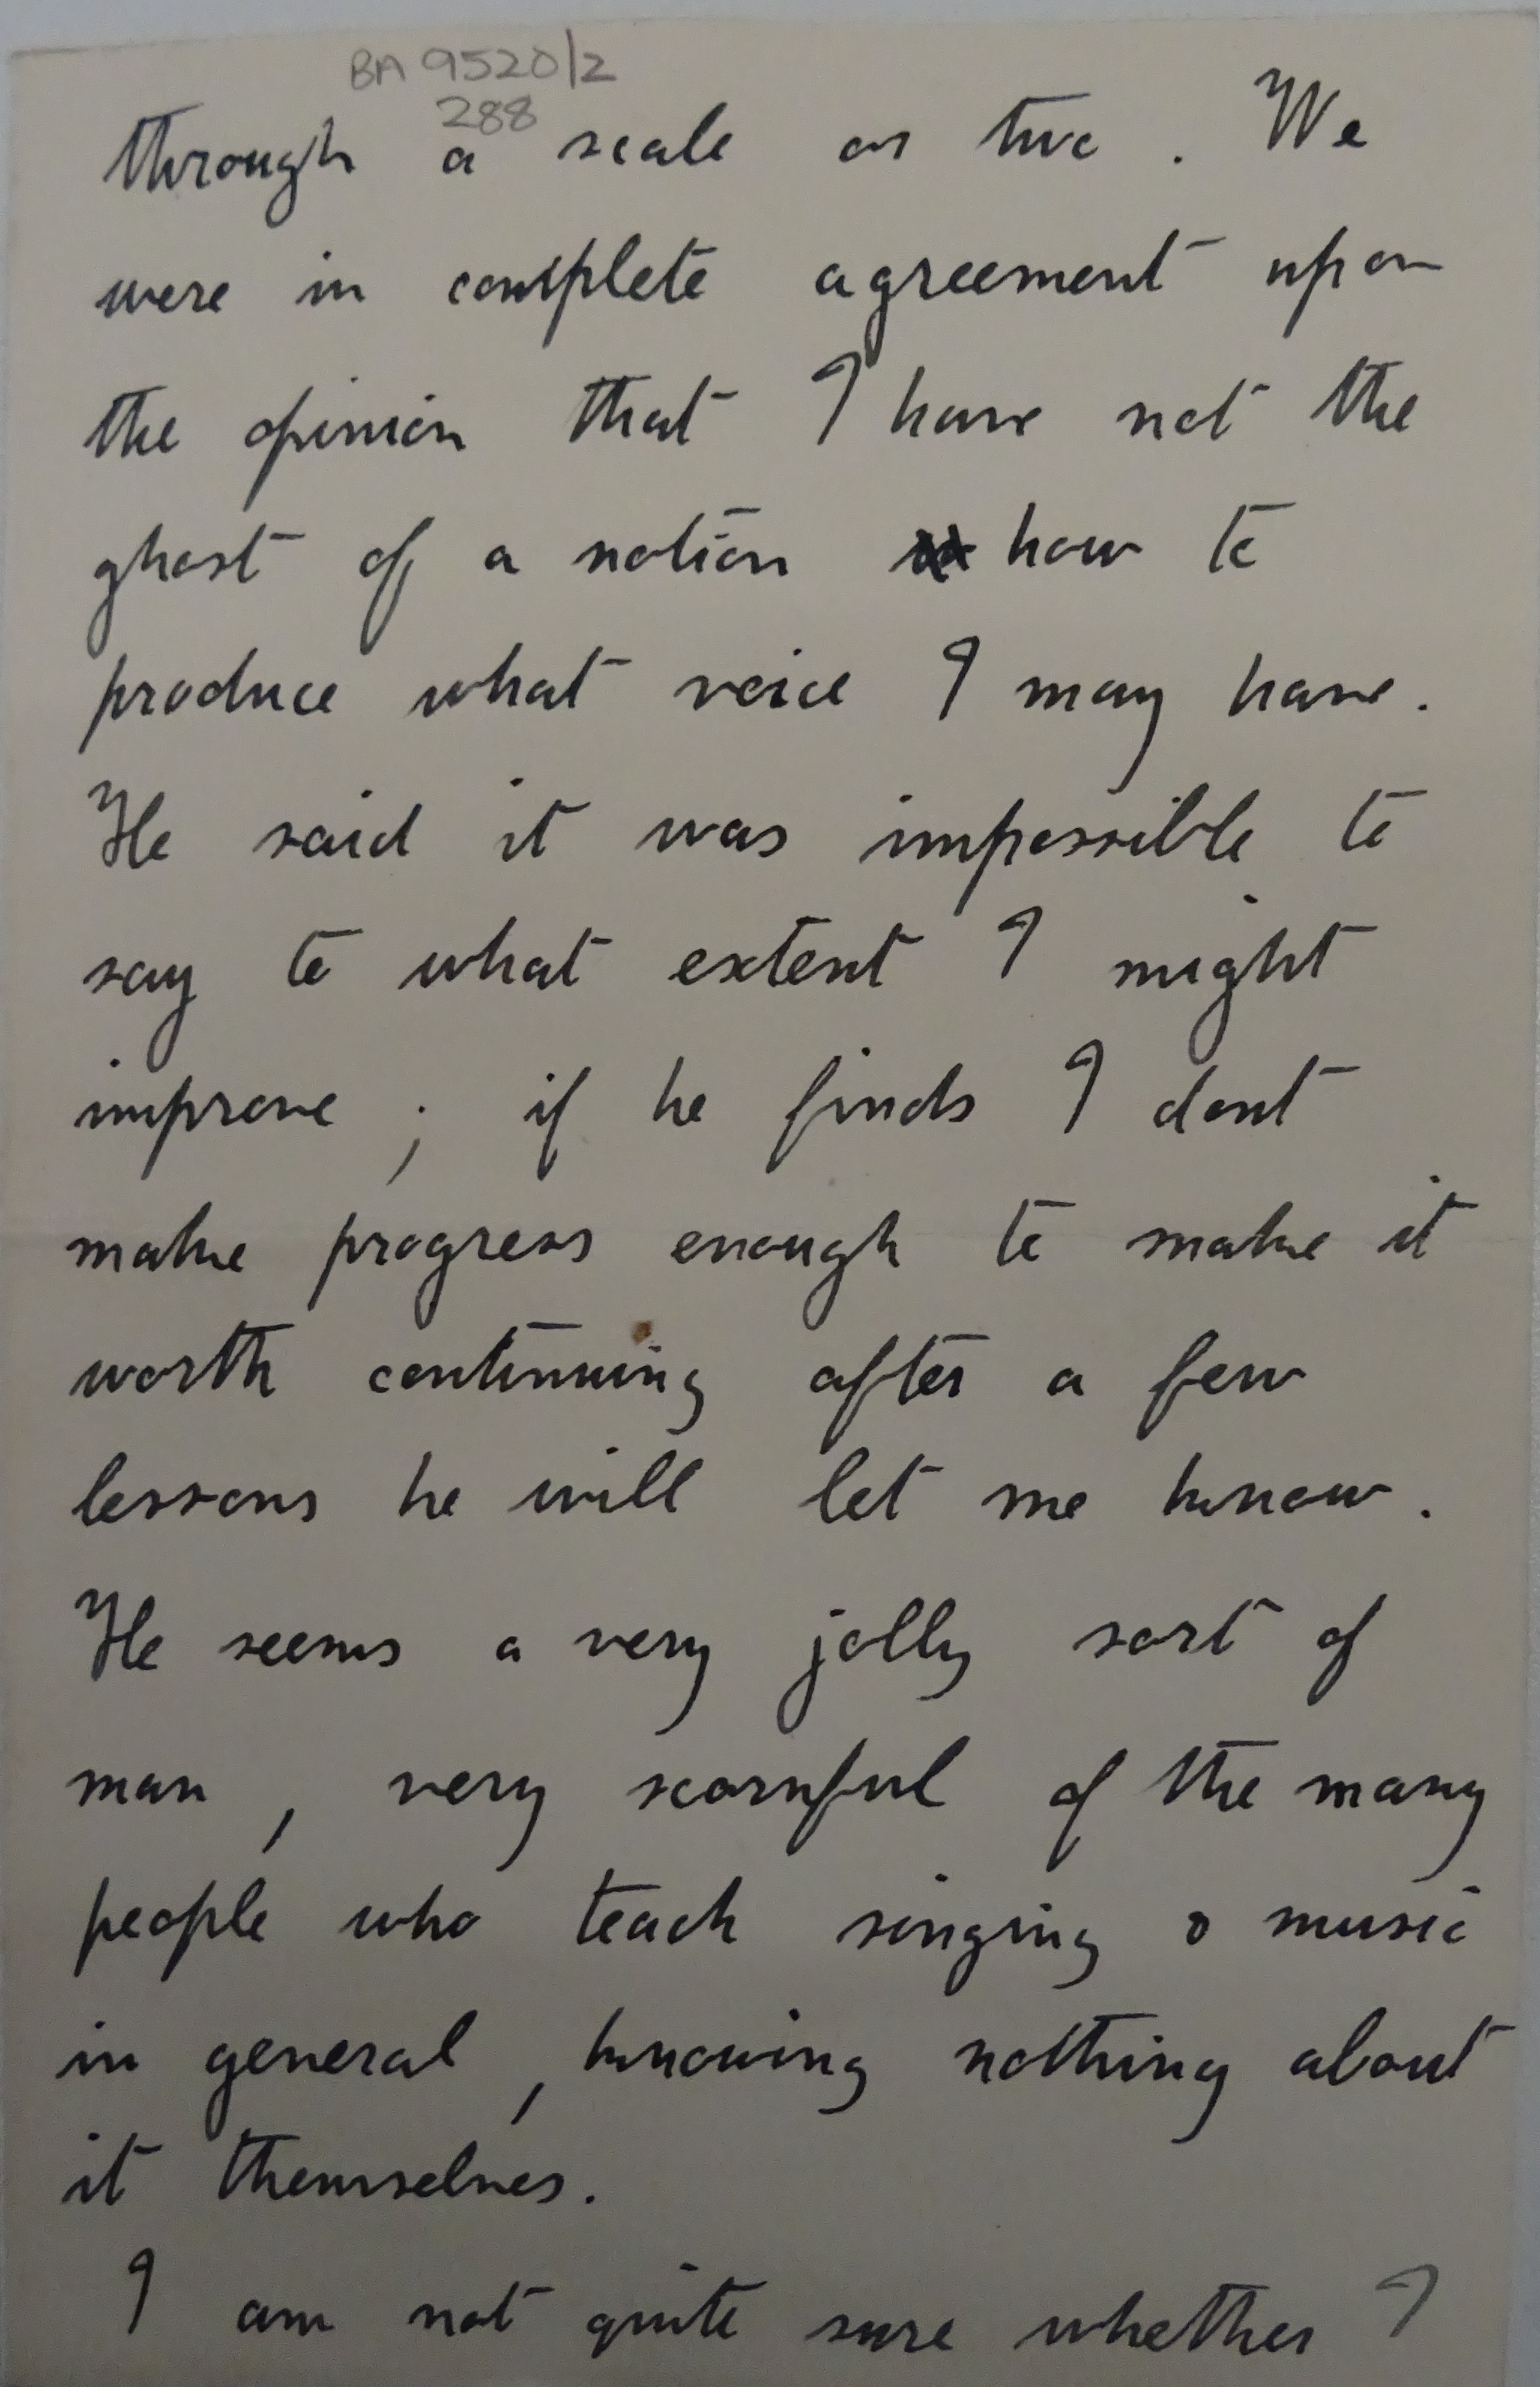 BA 9520/2
288
through a scale or two. We
were in complete agreement upon
the opinion that I have not the
ghost of a notion how to
produce what voice I may have.
He said it was impossible to
say to what extent I might
improve; if he finds I dont
make progress enough to make it
worth continuing after a few
lessons he will let me know.
He seems a very jolly sort of
man, very scornful of the many
people who teach singing & music
in general, knowing nothing about
it themselves.
I am not quite sure whether I